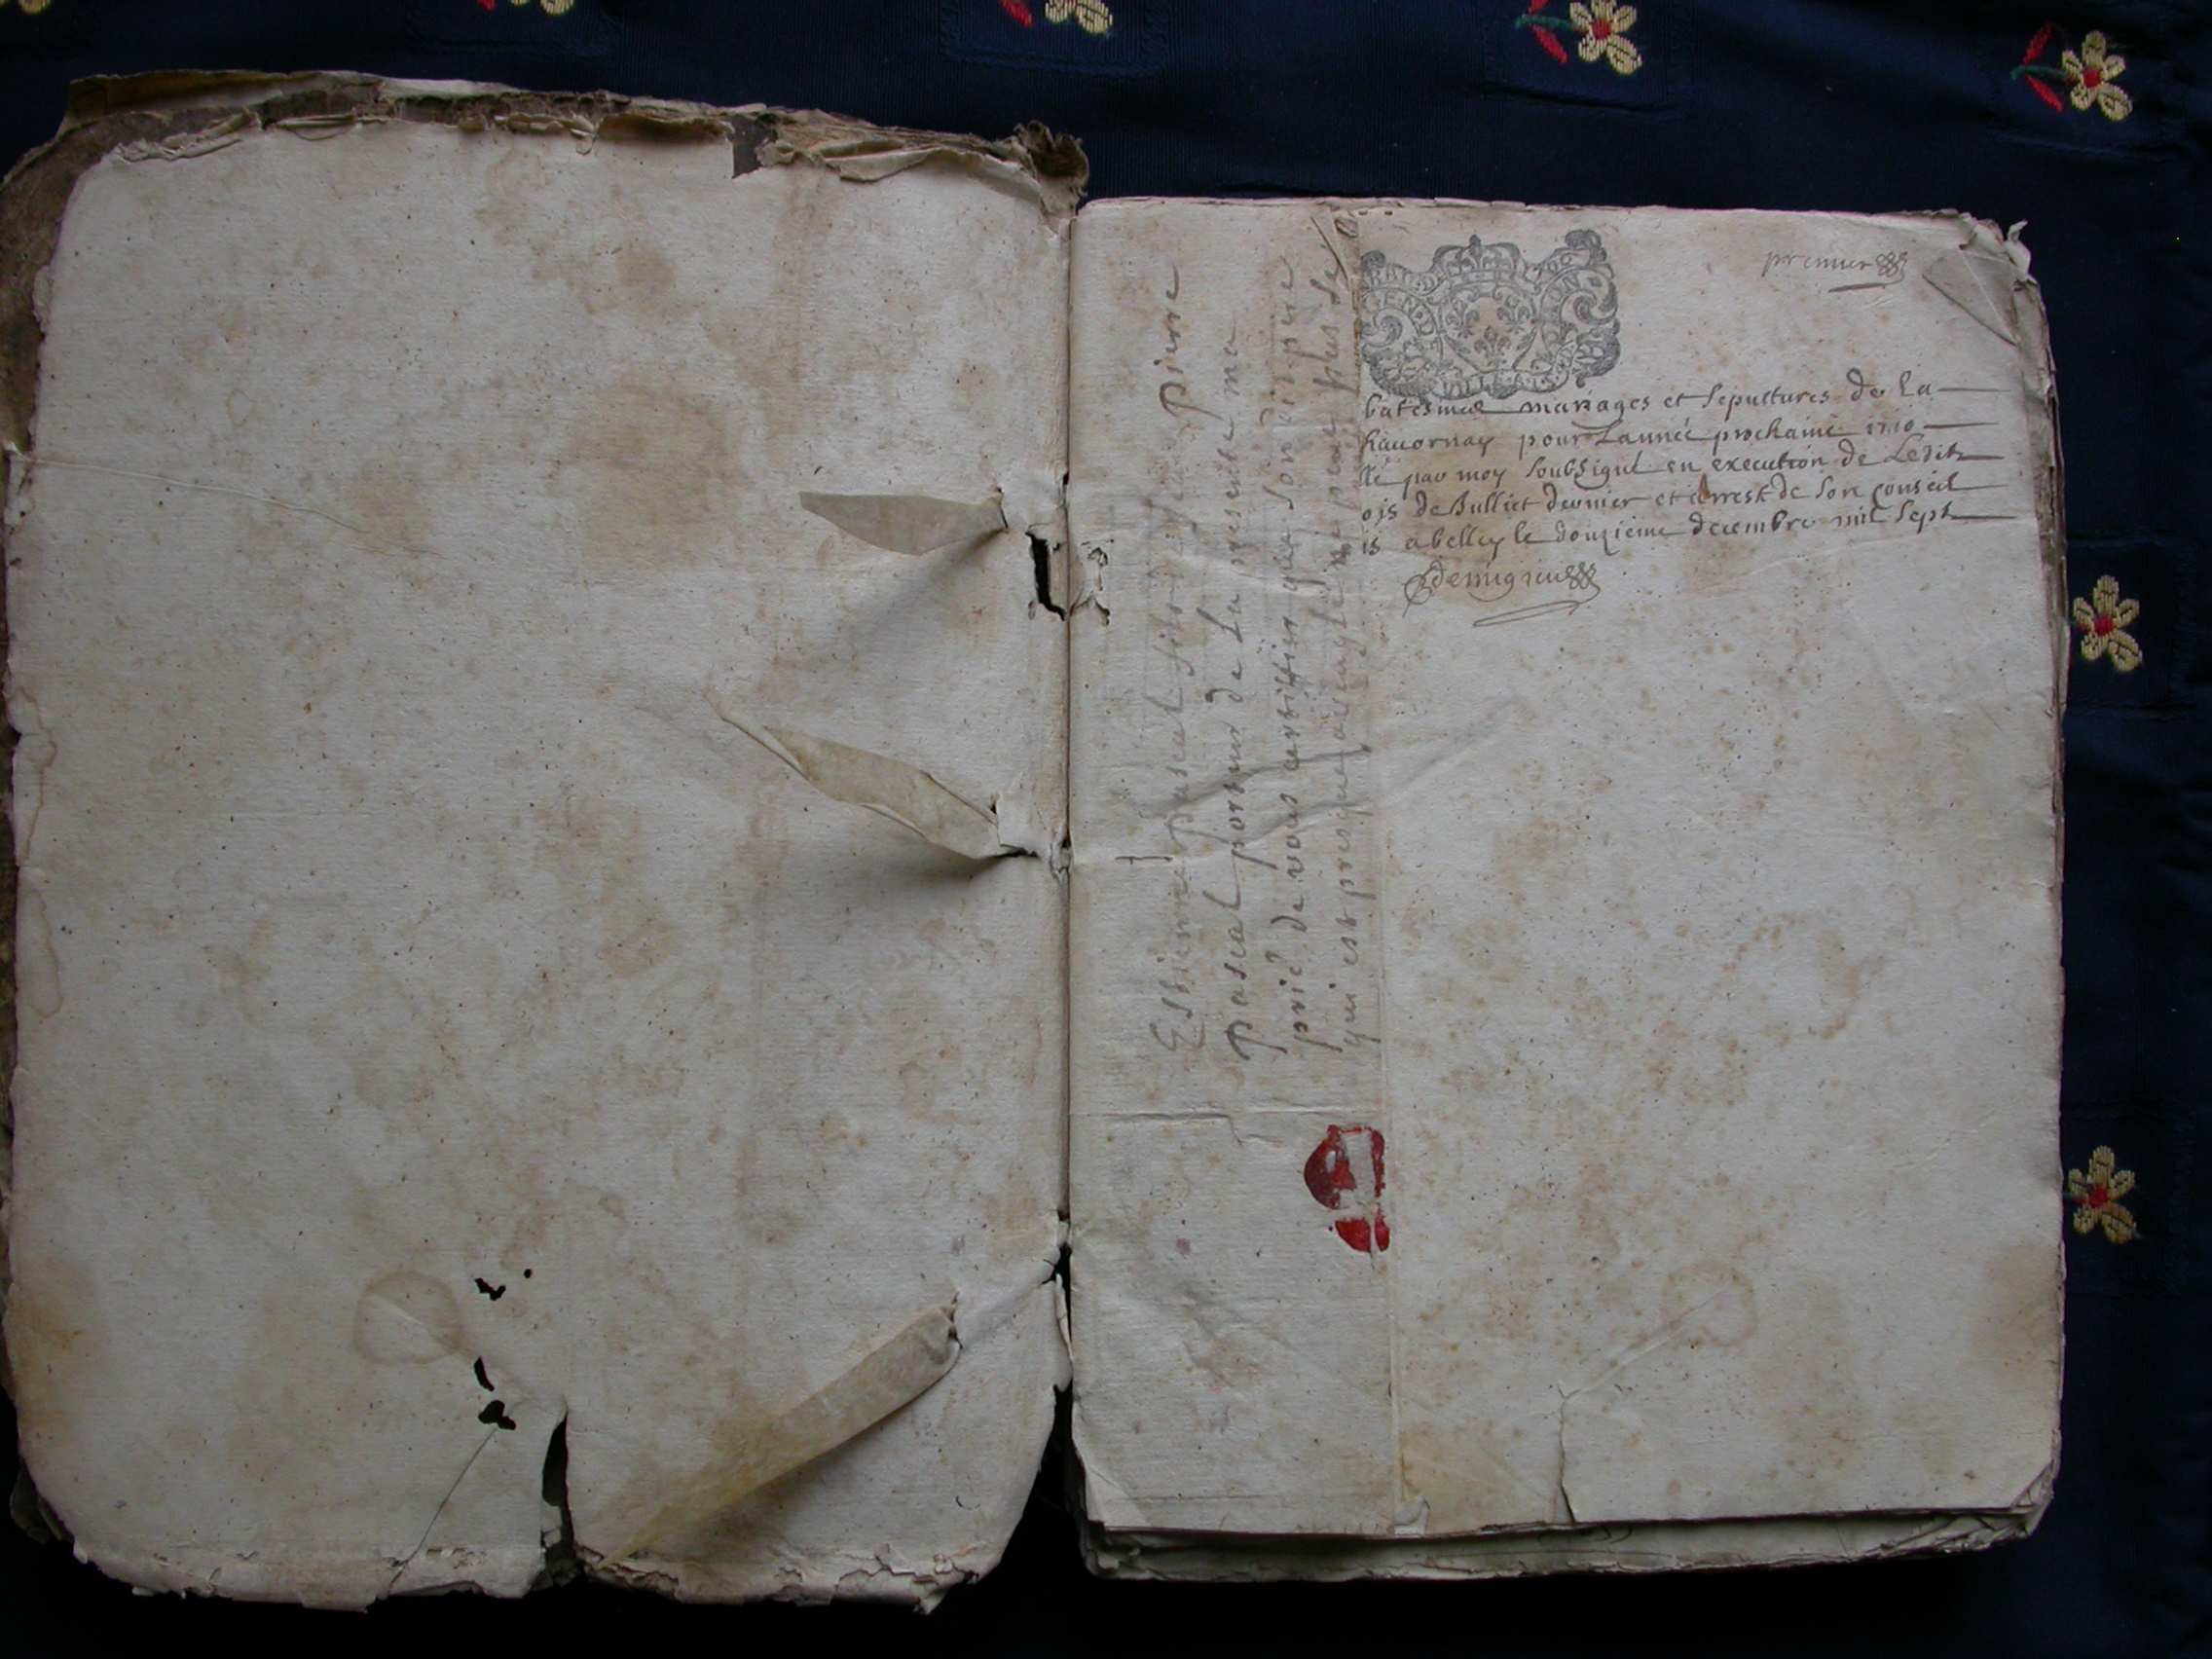 premier
batesmes mariages et sepultures de la
pour Lannée prochaine 1710
par moy soubsigné en execution de Ledit
ois de Julliet dernier et arrest de son conseil
is a belley le douzieme decembre mil sept
Demigieu
Estienne pascal fils de feu pierre
pascal porteur de La presente ma
prié de vous certiffier que son dit pere
qui est presque aveugle ne peut plus se